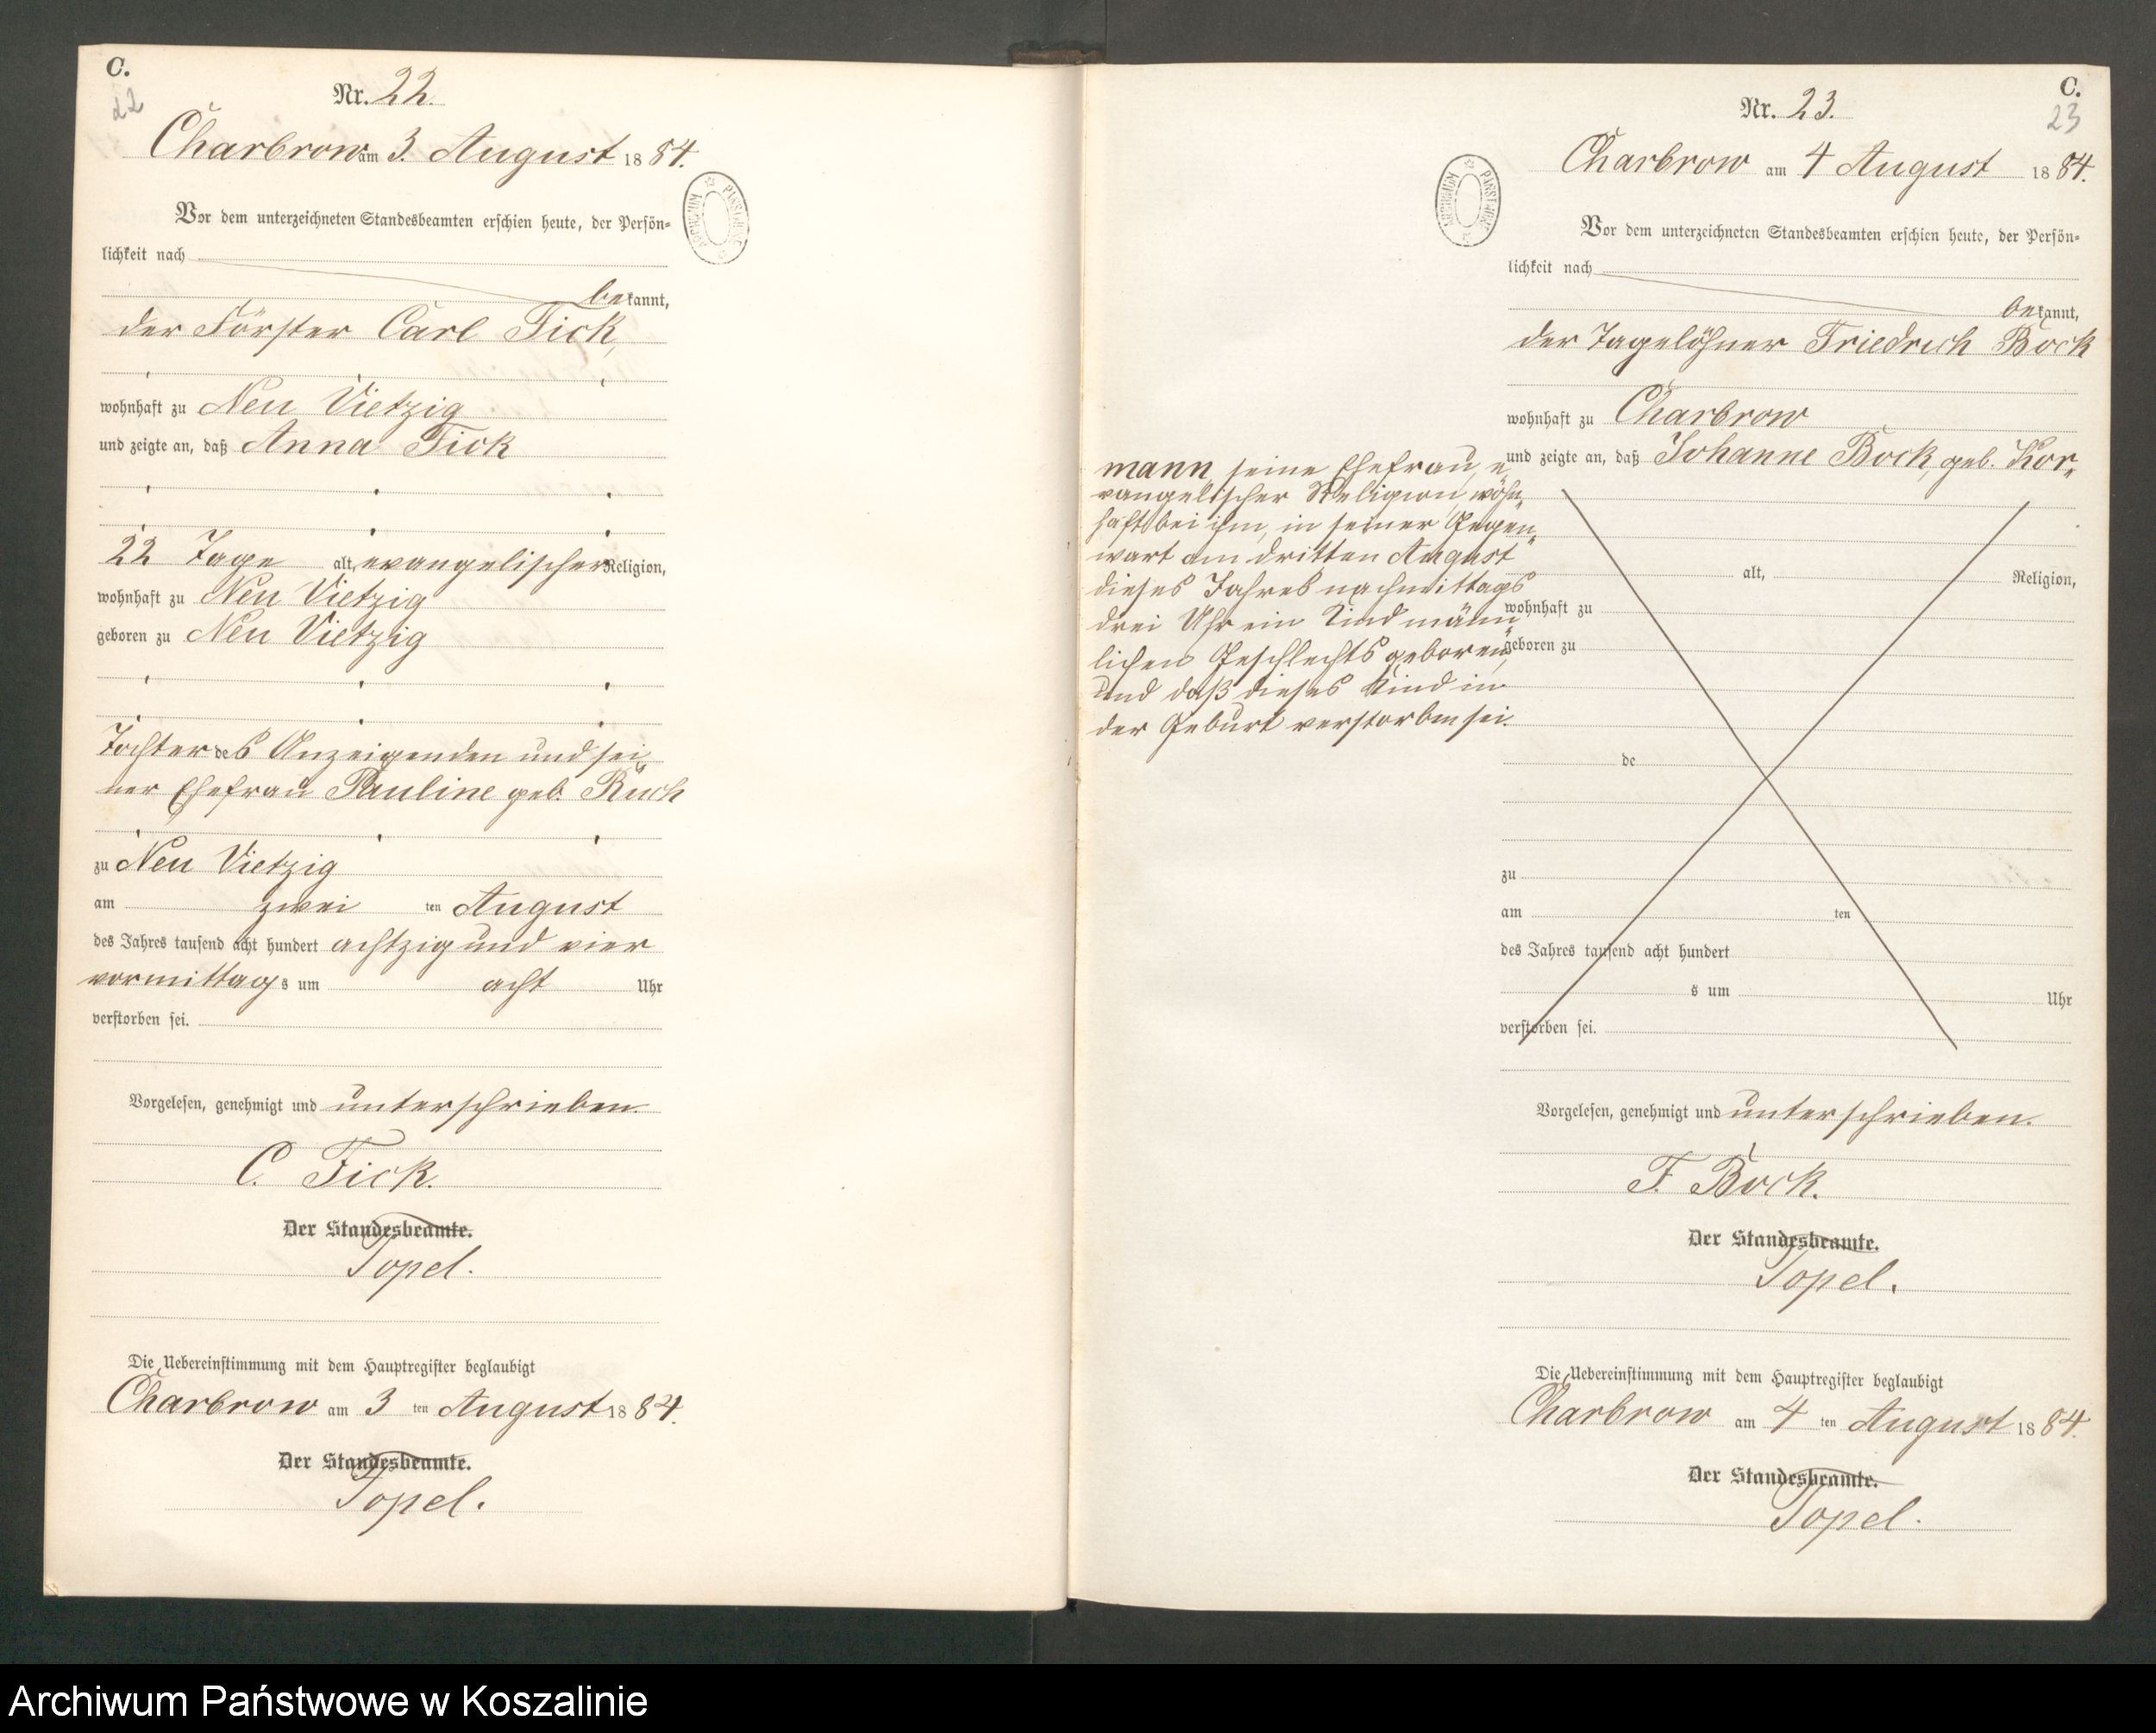 C.
22
Nr. 22.
Charbrow am 3. August 1884.
Vor dem unterzeichneten Standesbeamten erschien heute, der Persön-
lichkeit nach
bekannt,
der Förster Carl Fick,
wohnhaft zu Neu Vietzig
und zeigte an, daß Anna Fick
22 Tage alt, evangelischer Religion,
wohnhaft zu Neu Vietzig
geboren zu Neu Vietzig
Tochter des Anzeigenden und sei
ner Ehefrau Pauline geb. Ruch
zu Neu Vietzig
am zwei ten August
des Jahres tausend acht hundert achtzig und vier
vormittags um acht Uhr
verstorben sei.
Vorgelesen, genehmigt und unterschrieben.
C. Fick.
Der Standesbeamte.
Topel.
Die Uebereinstimmung mit dem Hauptregister beglaubigt
Charbrow am 3 ten August 1884.
Der Standesbeamte.
Topel.
C.
23
Nr. 23.
Charbrow am 4 August 1884.
ARCHIWUM PAŃSTWOWE
Vor dem unterzeichneten Standesbeamten erschien heute, der Persön-
lichkeit nach
bekannt,
der Tagelöhner Friedrich Bock
wohnhaft zu Charbrow
und zeigte an, daß Johanne Bock, geb. Kor-
mann, seine Ehefrau, e
vangelischer Religion, wohn
haft bei ihm, in seiner Gegen
wart am dritten August
dieses Jahres nachmittags
drei Uhr ein Kind männ
lichen Geschlechts geboren,
und daß dieses Kind in
der Geburt verstorben sei.
alt, Religion,
wohnhaft zu
geboren zu
de
zu
am ten
des Jahres tausend acht hundert
s um Uhr
verstorben sei.
Vorgelesen, genehmigt und unterschrieben.
F. Bock.
Der Standesbeamte.
Topel.
Die Uebereinstimmung mit dem Hauptregister beglaubigt
Charbrow am 4 ten August 1884.
Der Standesbeamte.
Topel.
Archiwum Państwowe w Koszalinie